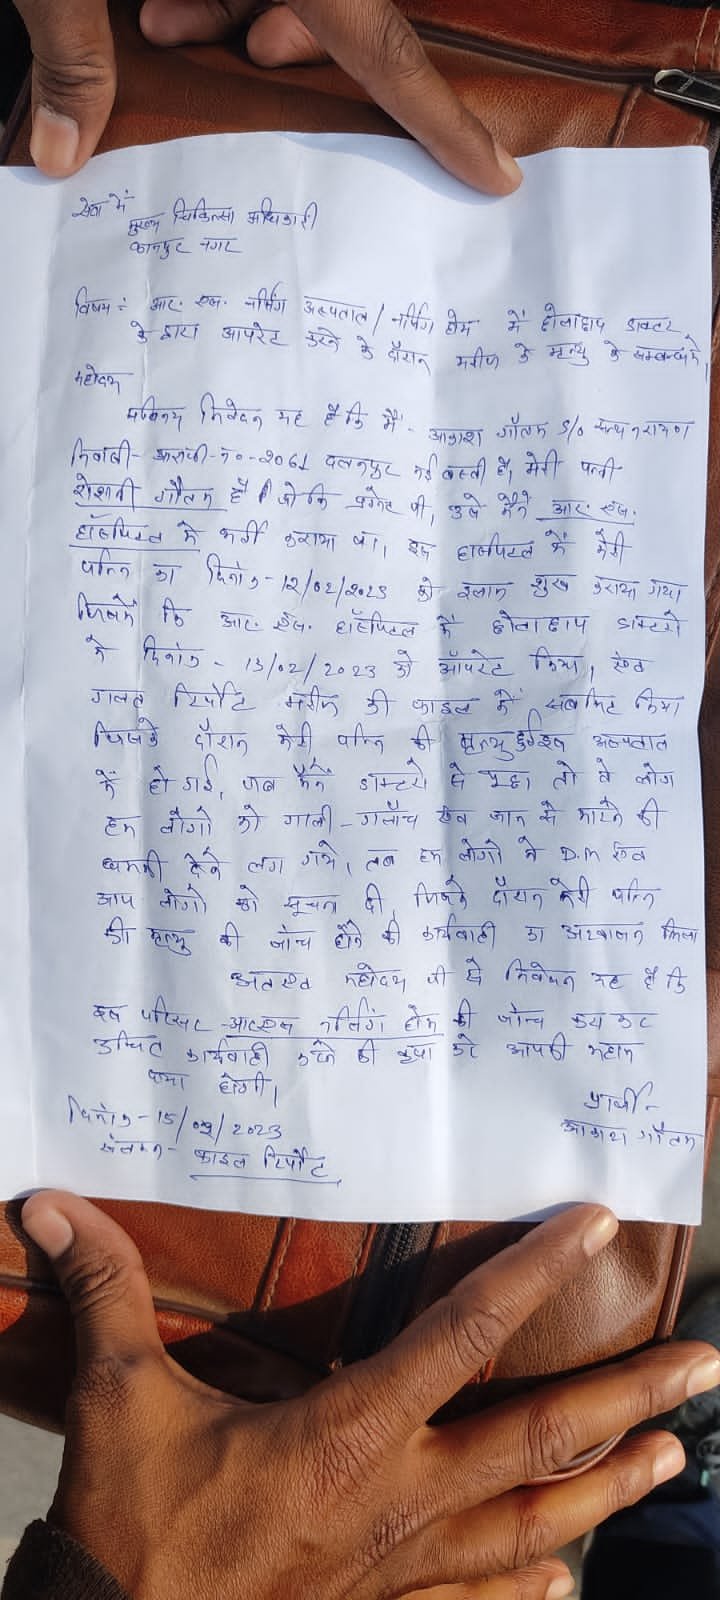 सेवा में
मुख्य चिकित्सा अधिकारी
कानपुर नगर
विषय : आर. एल. नर्सिंग अस्पताल / नर्सिंग होम में झोलाछाप डाक्टर
के द्वारा आपरेट करने के दौरान मरीज के मृत्यु के सम्बन्ध में,
महोदय
सविनय निवेदन यह है कि मैं - आकाश गौतम S/o सत्यनरायण
निवासी - आराजी - न० - 2061 नई बस्ती है, मेरी पत्नी
रोशनी गौतम है। जो कि थी, उसे मैंने आर. एल.
हॉस्पिटल में भर्ती कराया था। इस हास्पिटल में मेरी
पत्नि का दिनांक - 12/02/2023 को इलाज शुरू कराया गया
जिसमें कि आर. एल. हॉस्पिटल में झोलाछाप डाक्टरो
ने दिनांक - 13/02/2023 को ऑपरेट किया, एंव
गलत रिर्पोट मरीज की फाइल में सबमिट किया
जिसके दौरान मेरी पत्नि की मृत्यु इस अस्पताल
में हो गई, जब मैंने डाक्टरो से पूछा तो वे लोग
हम लोगो को गाली - गलौच एंव जान से मारने की
धमकी देने लग गये, तब हम लोगो ने D.M एंव
आप लोगो को सूचना दी, जिसके दौरान मेरी पत्नि
की मृत्यु की जाँच होने की कार्यवाही का अश्वासन मिला
अतएव महोदय जी से निवेदन यह है कि
इस नर्सिंग होम की जाँच करा कर
उचित कार्यवाही करने की कृपा करे आपकी महान
दया होगी।
प्रार्थी -
आकाश गौतम
दिनांक - 15/02/2023
संलग्न - फाइल रिर्पोट